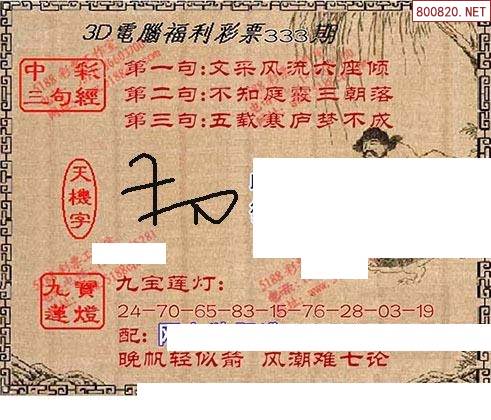 800820.NET
3D電腦福利彩票333期
中彩
三句經
第一句:文采风流六座倾
第二句:不知庭霰三朝落
第三句:五载寒庐梦不成
天機字
九寶
蓮燈
九宝莲灯:
24-70-65-83-15-76-28-03-19
配:
晚帆轻似箭 风潮难七论